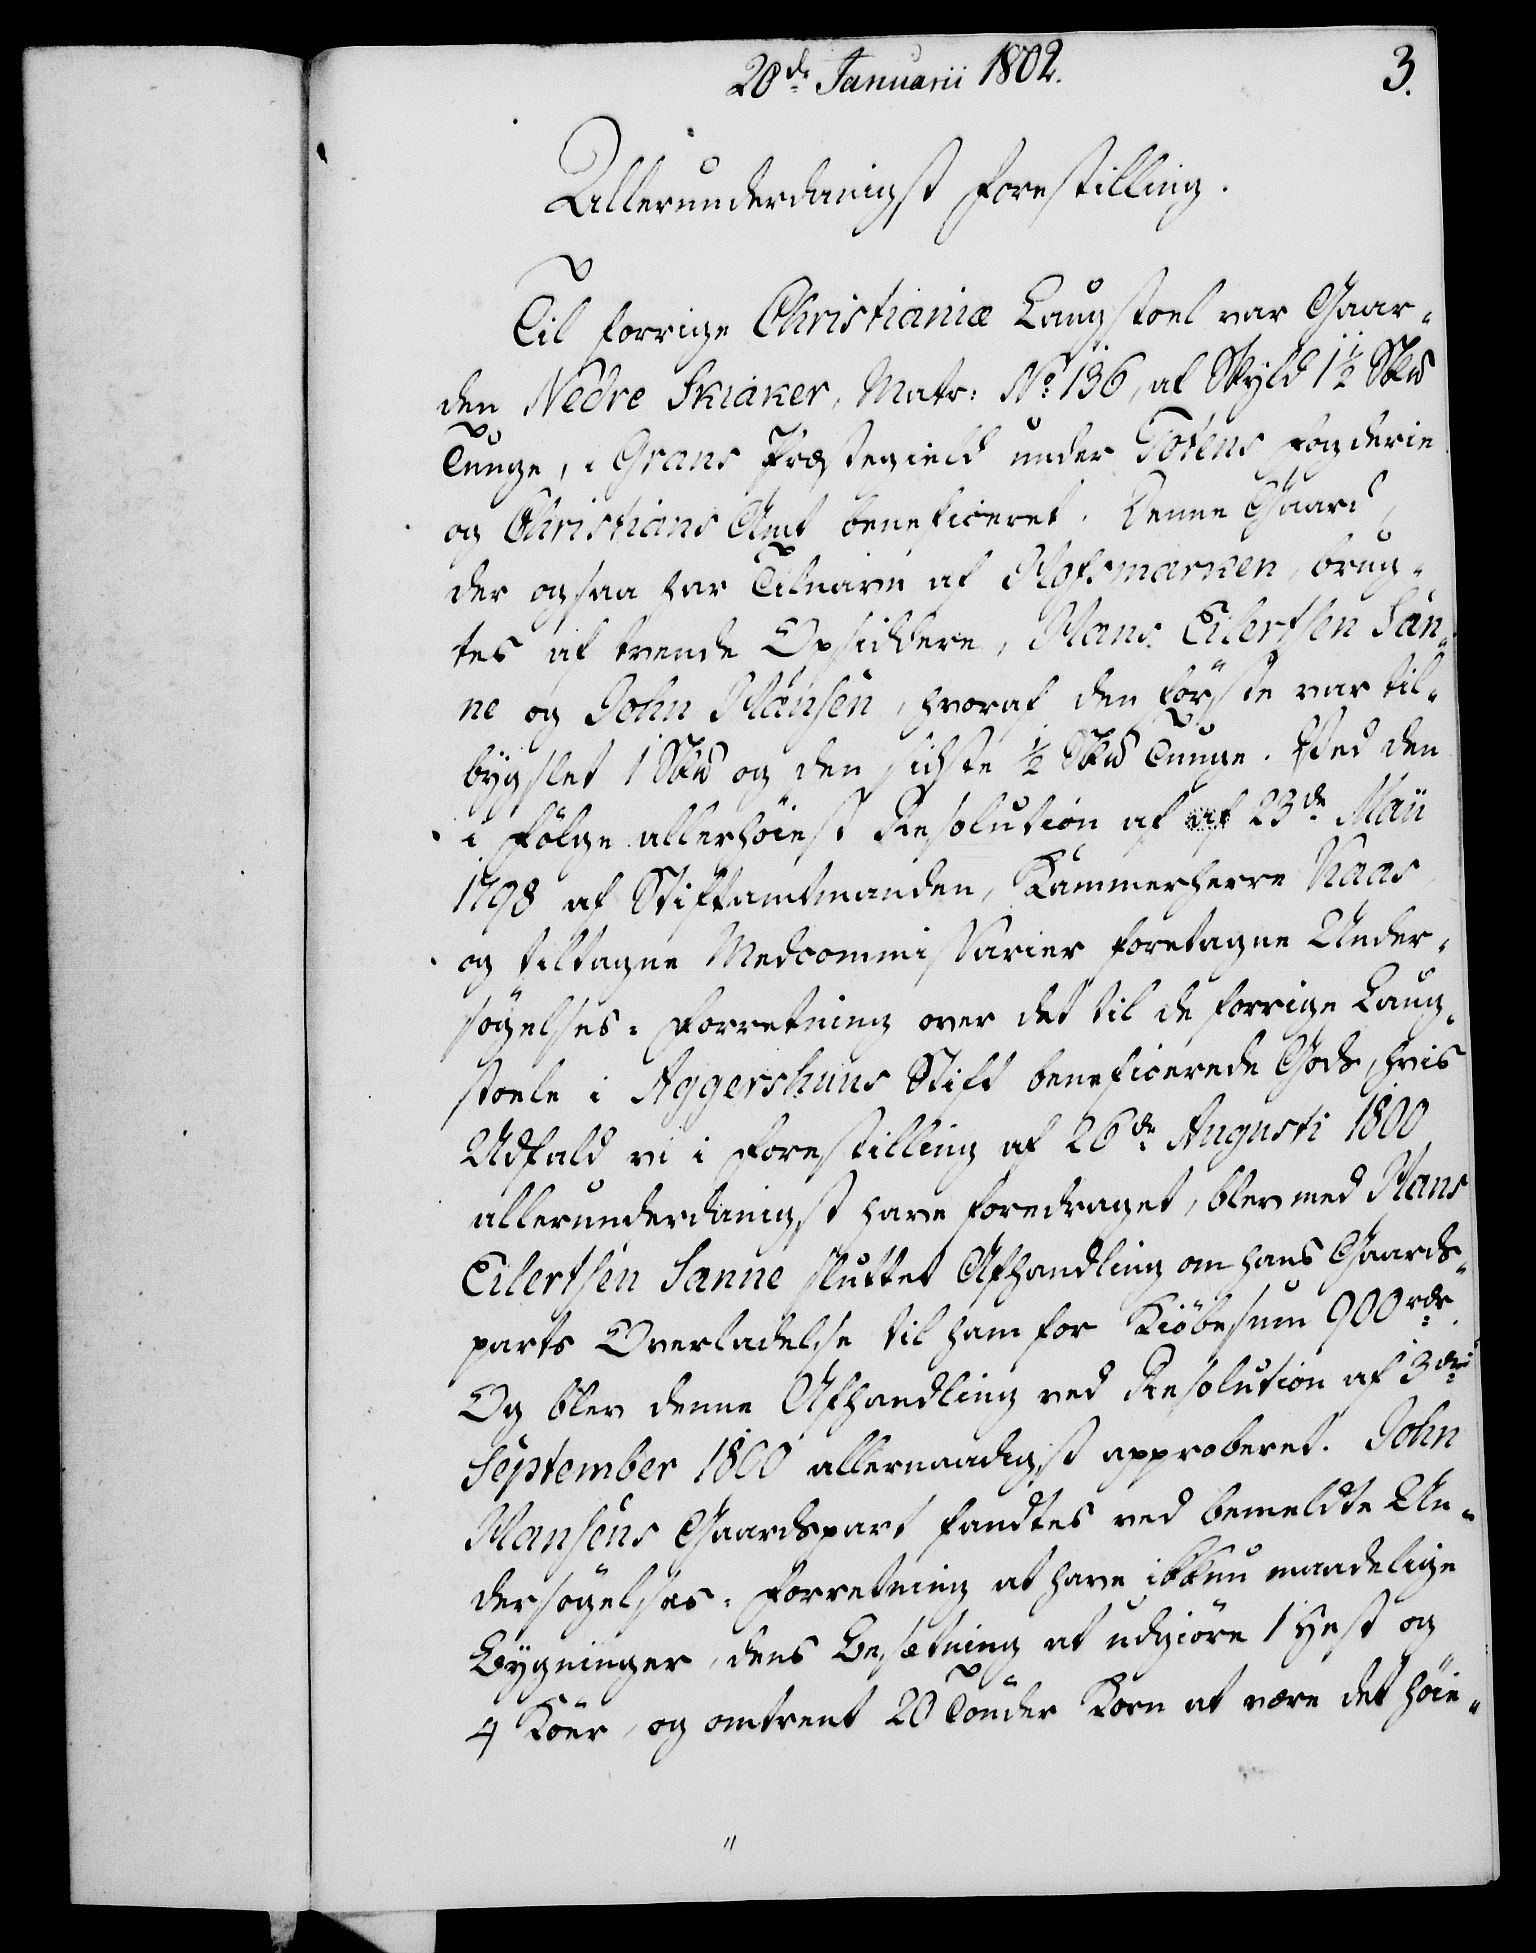 20de Januarii 1802.
3.
Allerunderdanigst Forestilling.
Til forrige Christianiæ Laugstoel var Gaar-
den Nedre Skiaker, Matr: No 136, af Skyld 1½ Sk℔
Tunge, i Grans Præstegield under Totens Fogderie
og Christians Amt beneficeret. Denne Gaard,
der ogsaa har Tilnavn af Hofsmarken, brug-
tes af tvende Opsiddere, Hans Eilertsen San-
ne og John Hansen, hvoraf den förste var til-
bygslet 1 Sk℔ og den sidste ½ Sk℔ Tunge. Ved den
i Fölge allerhöiest Resolution af af 23de Maii
1798 af Stiftamtmanden, Kammerherre Kaas
og tiltagne Medcommissarier foretagne Under-
sögelses-Forretning over det til de forrige Laug-
stoele i Aggershuus Stift beneficerede Gods, hvis
Udfald vi i Forestilling af 26de Augusti 1800
allerunderdanigst have foredraget, blev med Hans
Eilertsen Sanne sluttet Afhandling om hans Gaards-
parts Overladelse til ham for Kiöbesum 900 rdr.
Og blev denne Afhandling ved Resolution af 3die
September 1800 allernaadigst approberet. John
Hansens Gaardspart fandtes ved bemeldte Un-
dersögelses-Forretning at have ikkun maadelige
Bygninger, dens Besætning at udgiöre 1 Hest og
4 Köer, og omtrent 20 Tönder Korn at være det höie-